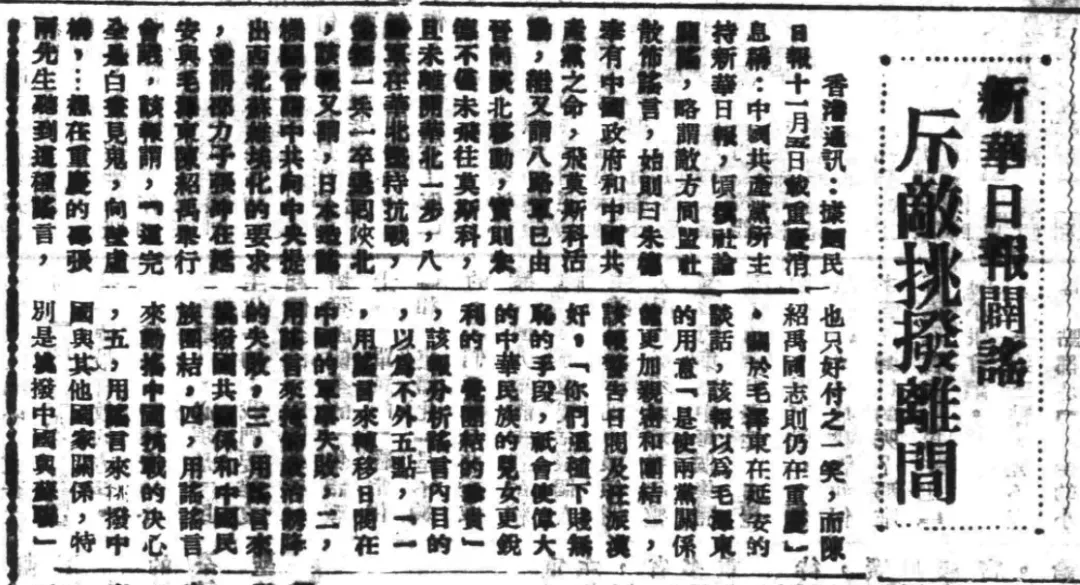 新華日報闢謠
斥敵挑撥離間
香港通訊：據國民
日報十一月五日載重慶消
息稱：中國共產黨所主
持新華日報，頃撰社論
闢謠，略謂敵方同盟社
散佈謠言，始則曰朱德
奉有中國政府和中國共
產黨之命，飛莫斯科活
動，繼又謂八路軍已由
晉向陝北移動，實則朱
德不僅未飛往莫斯科，
且未離開華北一步，八
路軍在華北堅持抗戰，
一兵一卒調回陝北
，該報又謂，日本造謠
機關會謂中共向中央提
出西北蘇維埃化的要求
，邵力子張冲在延
安與毛澤東陳紹禹舉行
會晤，該報謂，「這完
全是白晝見鬼，向壁虛
構，…想在重慶的邵張
兩先生聽到這種謠言，
也只好付之一笑，而陳
紹禹同志則仍在重慶」
。關於毛澤東在延安的
談話，該報以為毛澤東
的用意「是使兩黨關係
能更加親密和團結」，
該報警告日閥及汪派漢
奸，「你們這種下賤無
恥的手段，祇會使偉大
的中華民族的兒女更銳
利的覺團結的寶貴」
，該報分析謠言內目的
，以為不外五點，「一
，用謠言來轉移日閥在
中國的軍事失敗，二，
用謠言來掩飾政治誘降
的失敗，三，用謠言來
挑撥國共關係和中國民
族團結，四，用謠言
來動搖中國抗戰的決心
，五，用謠言來挑撥中
國與其他國家關係，特
別是挑撥中國與蘇聯」